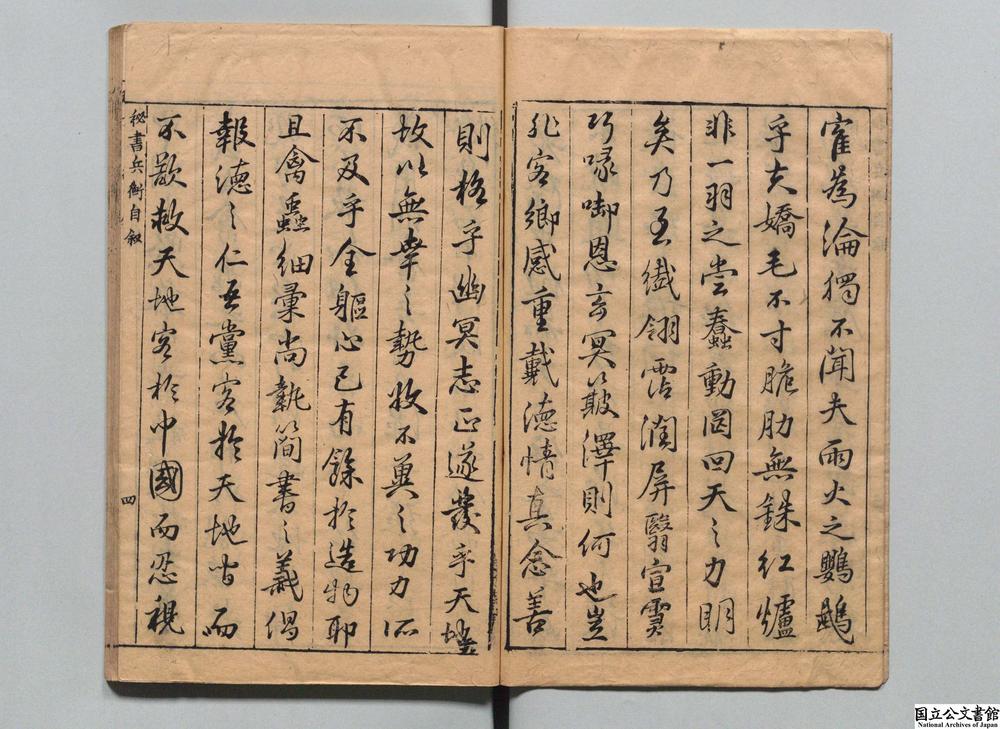 寉為淪獨不聞夫雨火之鸚鵡
乎夫嬌毛不寸脆肋無銖紅爐
非一羽之嘗蠢動罔回天之力明
矣乃至纎翎霑潤屏翳宣雲
巧喙啣恩玄冥簸澤則何也豈
非客鄉感重戴德情真念善
則格乎幽冥志正遂發乎天地
故以無幸之勢收不冀之功力所
不及乎全軀心已有餘於造物耶
且禽蟲細彙尚執簡書之義偈
報德之仁吾黨客於天地者而
不歆救天地客於中國而忍視
秘書兵衡自叙
四
国立公文書館
National Archives of Japan